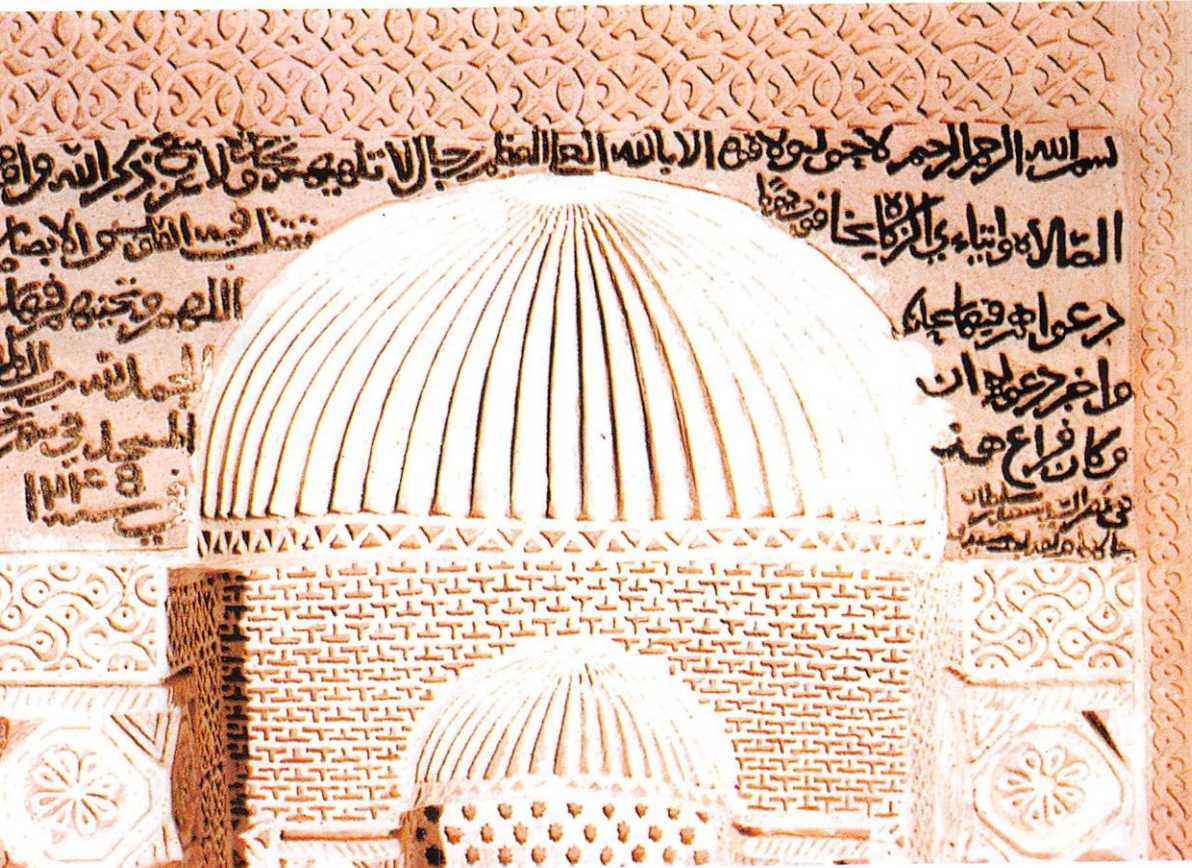 بسم الله الرحمن الرحيم لا حول ولا قوة الا بالله العلي العظيم رجال لا تلهيهم تجارة ولا بيع عن ذكر الله واقا
الصلاة وايتاء الزكاة يخافون يوما تتقلب فيه القلوب والابصار
دعواهم فيها سبحانك اللهم وتحيتهم فيها
واخر دعواهم ان الحمد لله رب العا
وكان فراغ هذ المسجد في شهر
في عصر السيد سلطان
سنة ١٢٤٨